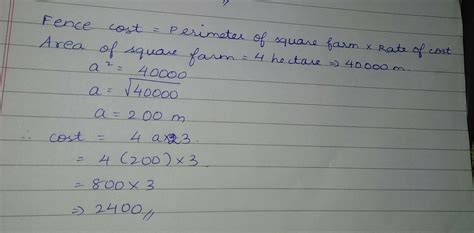 Fence cost = Perimeter of square farm × Rate of cost
Area of square farm = 4 hectare ⇒ 40000 m.
a² = 40000
a = √40000
a = 200 m
∴ cost = 4 a × 3.
= 4 (200) × 3
= 800 × 3
⇒ 2400 //